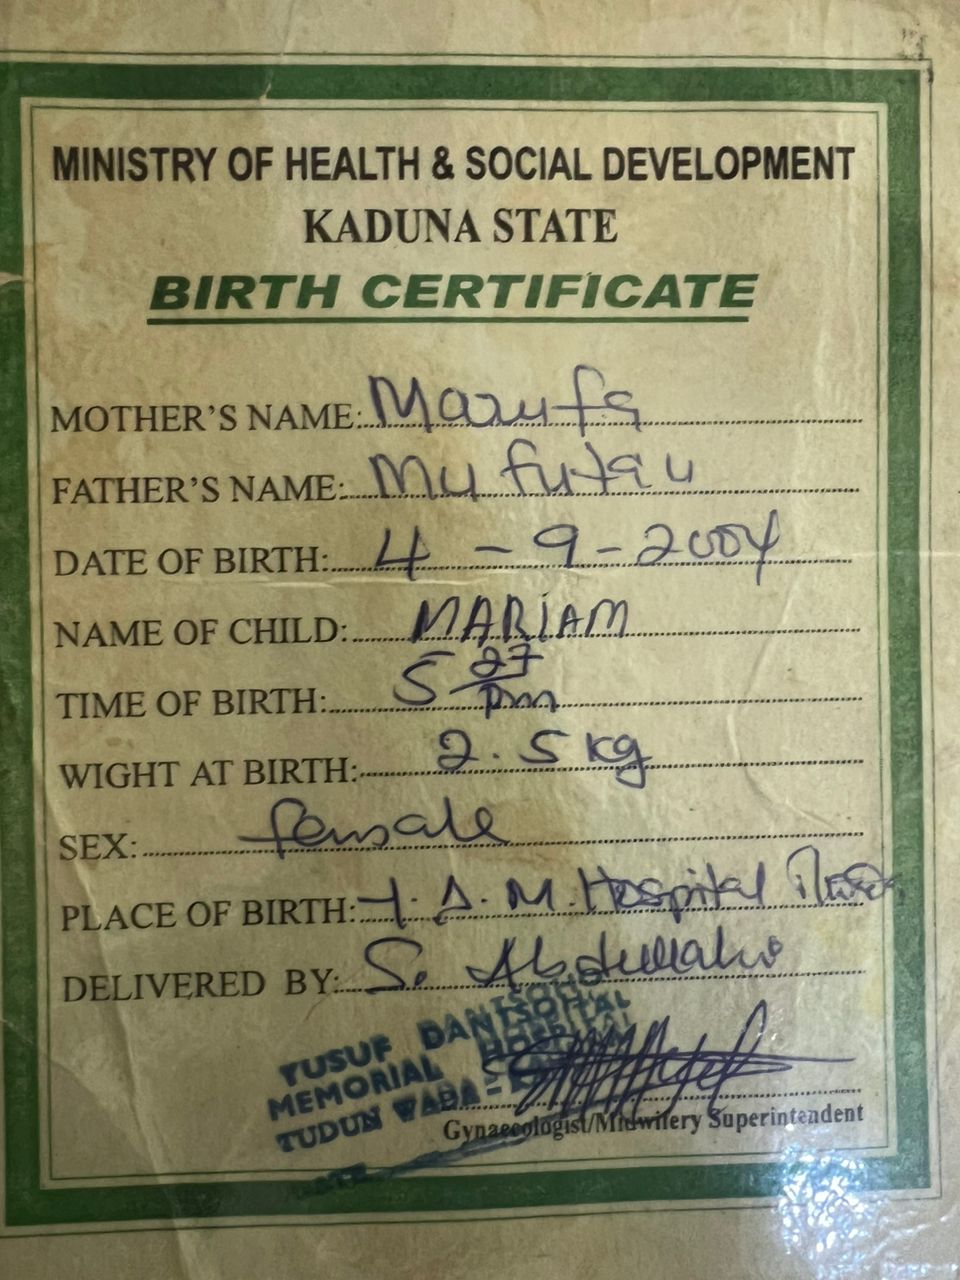 MINISTRY OF HEALTH & SOCIAL DEVELOPMENT
KADUNA STATE
BIRTH CERTIFICATE
MOTHER'S NAME: Marufa
FATHER'S NAME: Mufutau
DATE OF BIRTH: 4 - 9 - 2004
NAME OF CHILD: MARIAM
TIME OF BIRTH: 5 27 pm
WIGHT AT BIRTH: 2.5 kg
SEX: female
PLACE OF BIRTH: Y.D.M. Hospital
DELIVERED BY: S. Abdullahi
YUSUF DANTSOHO
MEMORIAL HOSPITAL
TUDUN WADA -
Gynaecologist/Midwifery Superintendent